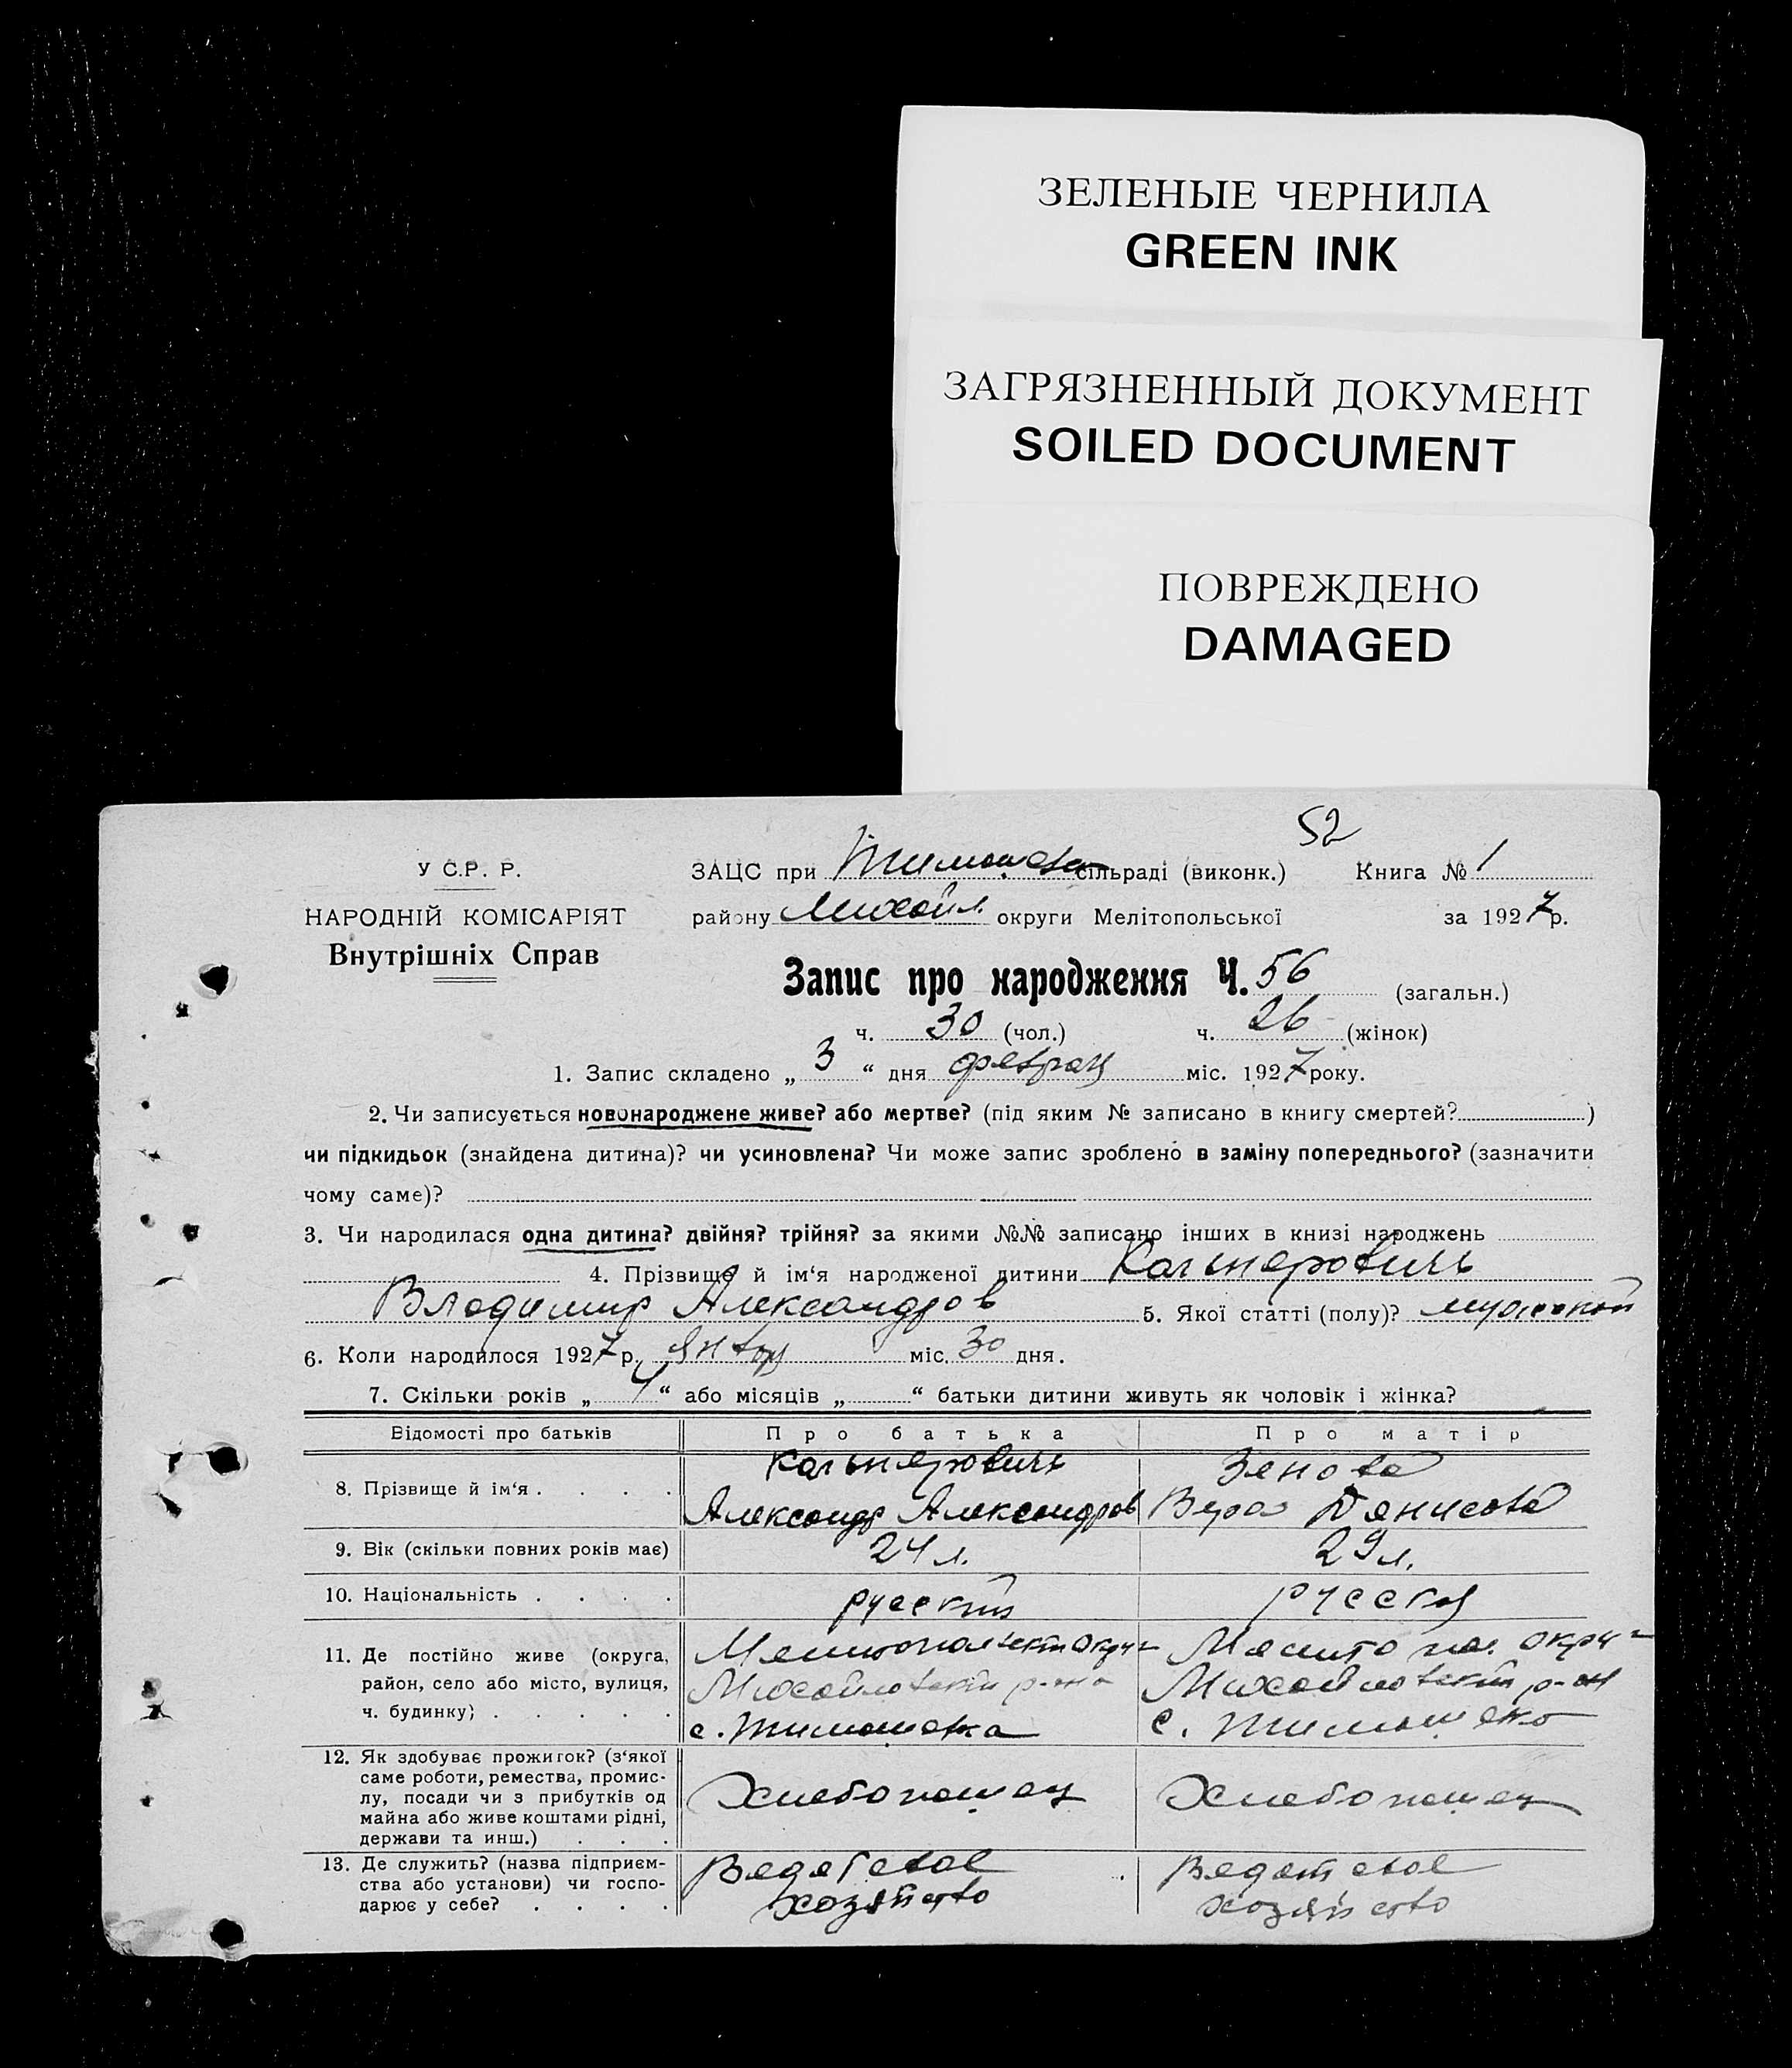 ЗЕЛЕНЫЕ ЧЕРНИЛА
GREEN INK
ЗАГРЯЗНЕННЫЙ ДОКУМЕНТ
SOILED DOCUMENT
ПОВРЕЖДЕНО
DAMAGED
52
У С.Р. Р.
НАРОДНІЙ КОМІСАРІЯТ
Внутрішніх Справ
ЗАЦС при сільраді (виконк.) Книга № 1
району Михайл. округи Мелітопольської за 1927 р.
Запис про народження Ч. 56 (загальн.)
ч. 30 (чол.) ч. 26 (жінок)
1. Запис складено „ 3 “ дня міс. 1927 року.
2. Чи записується новонароджене живе? або мертве? (під яким № записано в книгу смертей? )
чи підкидьок (знайдена дитина)? чи усиновлена? Чи може запис зроблено в заміну попереднього? (зазначити
чому саме)?
3. Чи народилася одна дитина? двійня? трійня? за якими №№ записано інших в книзі народжень
4. Прізвище й ім‘я народженої дитини
Владимир Александров 5. Якої статті (полу)? мужской
6. Коли народилося 1927 р. міс. 30 дня.
7. Скільки років „ 4 “ або місяців „ “ батьки дитини живуть як чоловік і жінка?
Відомості про батьків Про батька Про матір
8. Прізвище й ім‘я . . . . Зенова
Александр Александров Вера Денисова
9. Вік (скільки повних років має) 24 л. 29 л.
10. Національність . . . . русский
11. Де постійно живе (округа,
район, село або місто, вулиця,
ч. будинку) . . . . .
Михайловский р-на
с. Тимошевка
Михайловский р-он
12. Як здобуває прожиток? (з‘якої
саме роботи, ремества, промис-
лу, посади чи з прибутків од
майна або живе коштами рідні,
держави та инш.) . . .
Хлебопашец Хлебопашец
13. Де служить? (назва підприєм-
ства або установи) чи госпо-
дарює у себе? . . . .
хозяйство
хозяйство